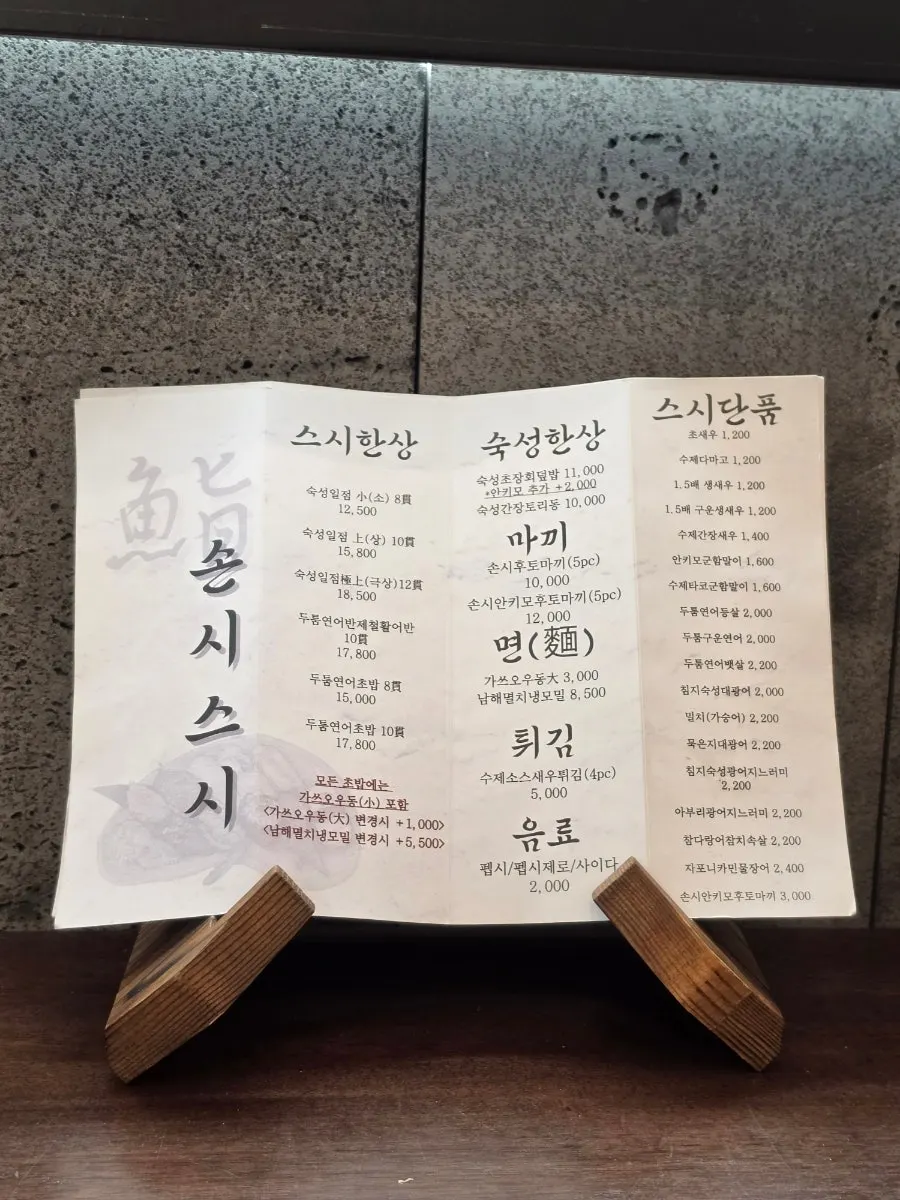 鮨
손시스시
스시한상
숙성일점 小(소) 8貫
12,500
숙성일점 上(상) 10貫
15,800
숙성일점極上(극상)12貫
18,500
두툼연어반제철활어반
10貫
17,800
두툼연어초밥 8貫
15,000
두툼연어초밥 10貫
17,800
모든 초밥에는
가쓰오우동(小) 포함
<가쓰오우동(大) 변경시 +1,000>
<남해멸치냉모밀 변경시 +5,500>
숙성한상
숙성초장회덮밥 11,000
*안키모 추가 +2,000
숙성간장토리동 10,000
마끼
손시후토마끼(5pc)
10,000
손시안키모후토마끼(5pc)
12,000
면(麵)
가쓰오우동大 3,000
남해멸치냉모밀 8,500
튀김
수제소스새우튀김(4pc)
5,000
음료
펩시/펩시제로/사이다
2,000
스시단품
초새우 1,200
수제다마고 1,200
1.5배 생새우 1,200
1.5배 구운생새우 1,200
수제간장새우 1,400
안키모군함말이 1,600
수제타코군함말이 1,600
두툼연어등살 2,000
두툼구운연어 2,000
두툼연어뱃살 2,200
침지숙성대광어 2,000
밀치(가숭어) 2,200
묵은지대광어 2,200
침지숙성광어지느러미
2,200
아부리광어지느러미 2,200
참다랑어참치속살 2,200
자포니카민물장어 2,400
손시안키모후토마끼 3,000